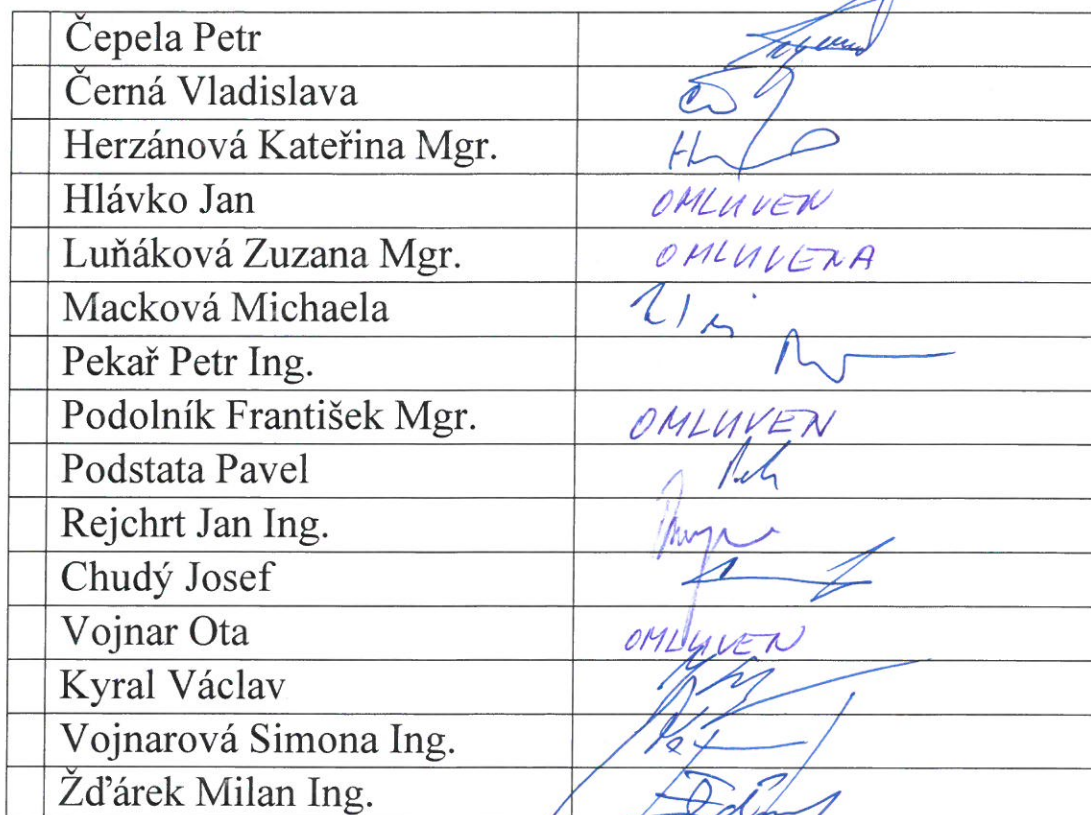 Čepela Petr
Černá Vladislava
Herzánová Kateřina Mgr.
Hlávko Jan OMLUVEN
Luňáková Zuzana Mgr. OMLUVENA
Macková Michaela
Pekař Petr Ing.
Podolník František Mgr. OMLUVEN
Podstata Pavel
Rejchrt Jan Ing.
Chudý Josef
Vojnar Ota OMLUVEN
Kyral Václav
Vojnarová Simona Ing.
Žďárek Milan Ing.